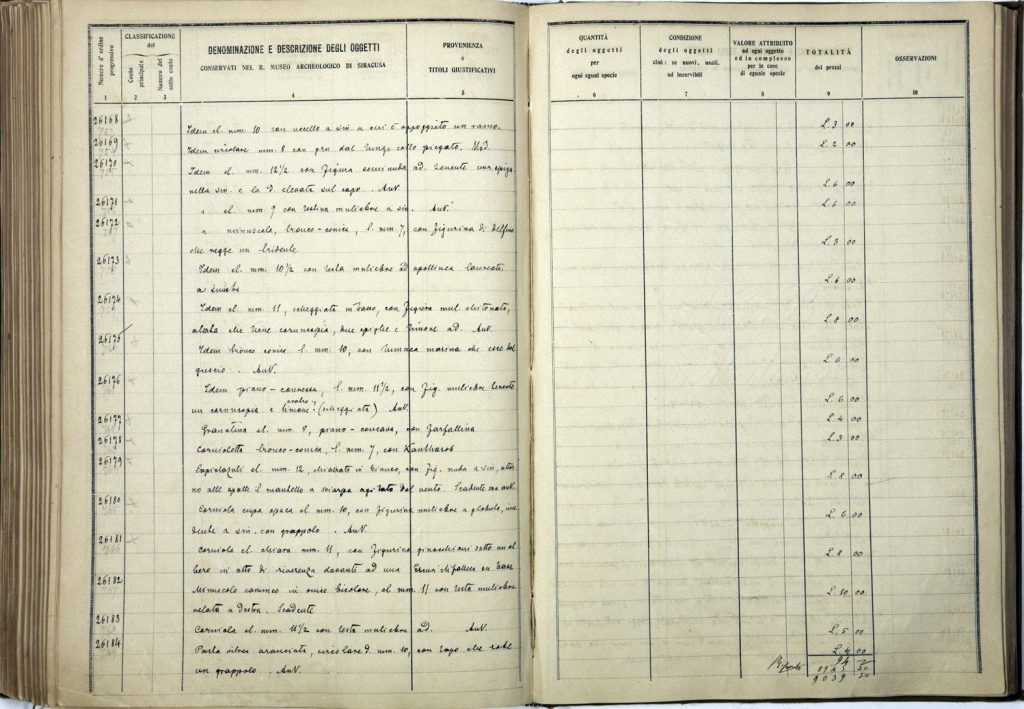 Numero d'ordine progressivo
CLASSIFICAZIONE
del
Conto principale
Numero del sotto conto
DENOMINAZIONE E DESCRIZIONE DEGLI OGGETTI
CONSERVATI NEL R. MUSEO ARCHEOLOGICO DI SIRACUSA
PROVENIENZA
e
TITOLI GIUSTIFICATIVI
1 2 3 4 5
26168 Idem el. mm. 10 con uccello a sin. a cui è appoggiato un ramo.
26169 Idem circolare mm. 8 con gru dal lungo collo piegato.
26170 Idem el. mm. 12 1/2 con figura seminuda ad. tenente una spiga
nella sin. e la d. elevata sul capo. AnV.
26171 " el. mm. 9 con testina muliebre a sin. AnV.
26172 " minuscola, tronco-conica, l. mm. 7, con figurina di delfino
che regge un tridente
26173 Idem el. mm. 10 1/2 con testa muliebre ad apollinea laureata
a sinistra
26174 Idem el. mm. 11, scheggiata in basso, con figura mul. chitonata,
alata che tiene cornucopia, due spighe e timone ad. AnV.
26175 Idem tronco conica l. mm. 10, con lumaca marina che esce dal
guscio. AnV.
26176 Idem piano-convessa, l. mm. 11 1/2, con fig. muliebre tenente
un cornucopia e timone? (scheggiata) AnV.
26177 Granatina el. mm. 8, piano-concava, con farfallina
26178 Cornioletta tronco-conica, l. mm. 7, con Kantharos
26179 Lapislazuli el. mm. 12, chiazzato in bianco, con fig. nuda a sin, attor
no alle spalle il mantello a sciarpa agitato dal vento. Scadente ma ant.
26180 Corniola cupa opaca el. mm. 10, con figurina muliebre a globuli,
a sin. con grappolo. AnV.
26181 Corniola el. chiara mm. 11, con figurina ginocchioni sotto un al
bero in atto di riverenza davanti ad una Erma su base
26182 Minuscolo cammeo in onice bicolore, el mm. 11 con testa muliebre
velata a destra. Scadente
26183 Corniola el. mm. 11 1/2 con testa muliebre ad. AnV.
26184 Pasta vitrea aranciata, circolare d. mm. 10, con topo che rode
un grappolo. AnV.
QUANTITÀ
degli oggetti
per
ogni egual specie
CONDIZIONE
degli oggetti
cioè: se nuovi, usati,
od inservibili
VALORE ATTRIBUITO
ad ogni oggetto
ed in complesso
per le cose
di eguale specie
TOTALITÀ
dei prezzi
OSSERVAZIONI
6 7 8 9 10
L. 3 00
L. 2 00
L. 6 00
L. 6 00
L. 3 00
L. 6 00
L. 8 00
L. 6 00
L. 6 00
L. 4 00
L. 3 00
L. 8 00
L. 6 00
L. 8 00
L. 10 00
L. 5 00
L. 4 00
94
Riporto 8945 50
9039 50